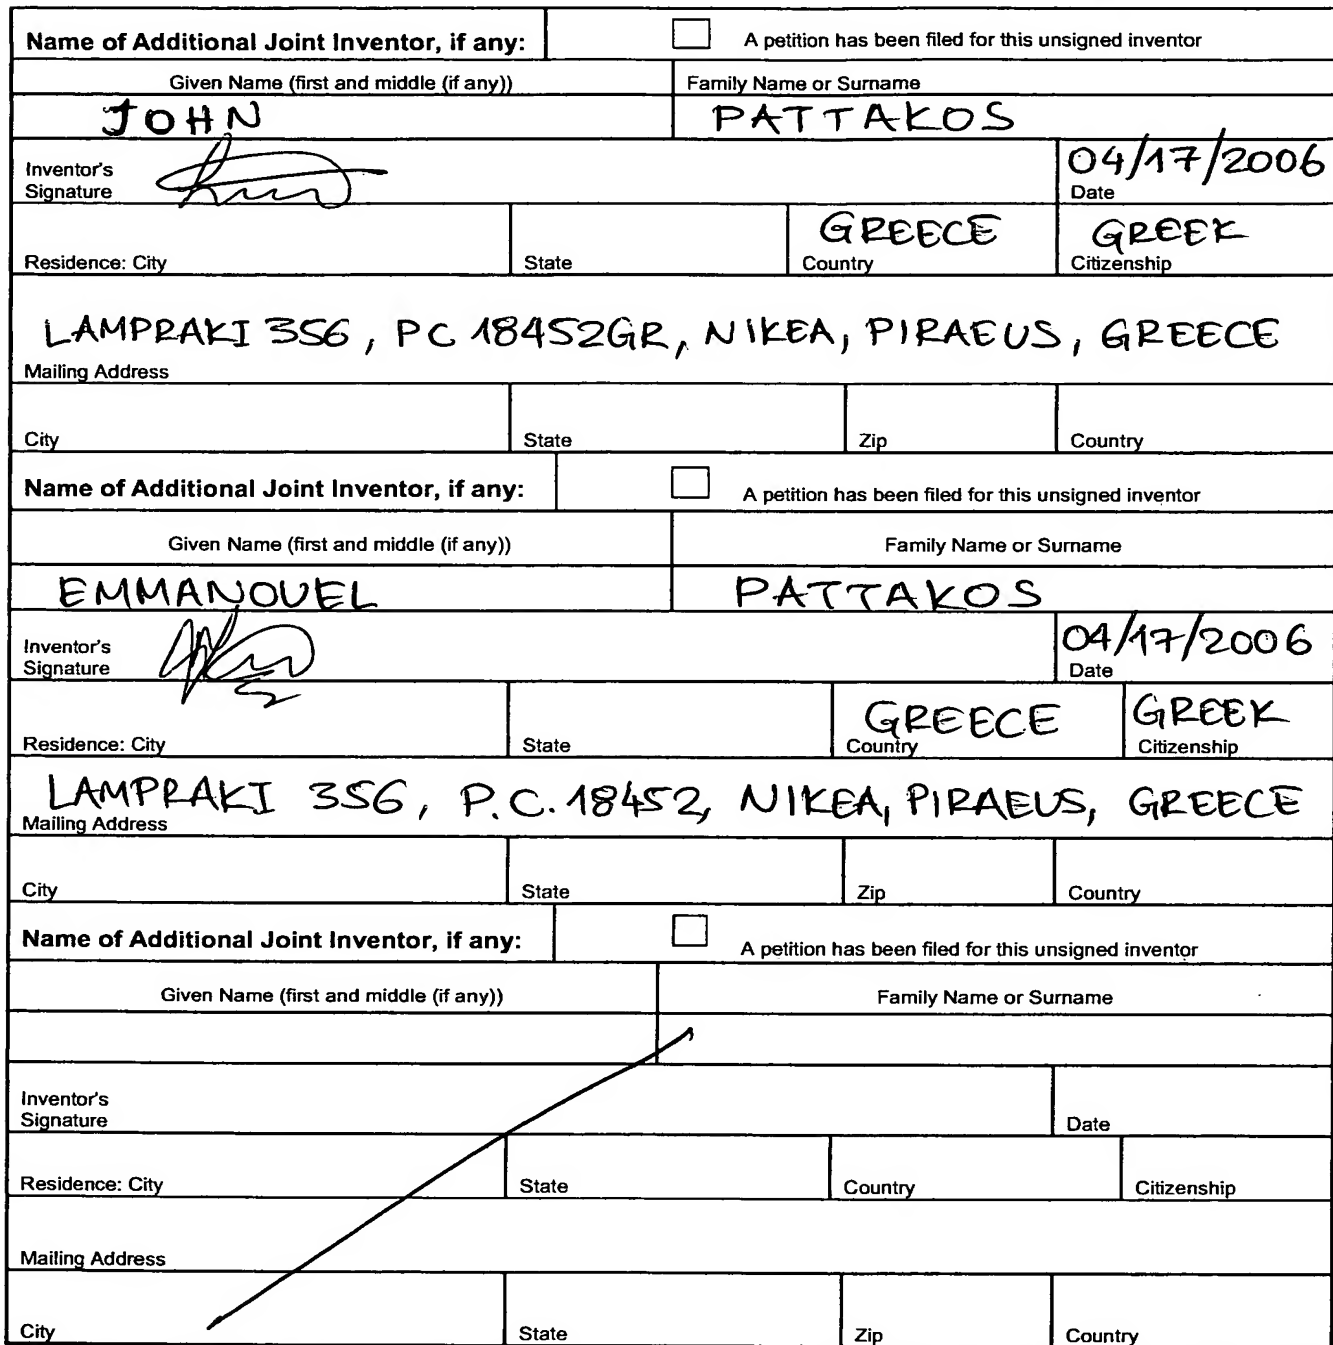 Name of Additional Joint Inventor, if any: A petition has been filed for this unsigned inventor
Given Name (first and middle (if any)) Family Name or Surname
JOHN PATTAKOS
04/17/2006
Inventor's
Signature Date
GREECE GREEK
Residence: City State Country Citizenship
LAMPRAKI 356, PC 18452GR, NIKEA, PIRAEUS, GREECE
Mailing Address
City State Zip Country
Name of Additional Joint Inventor, if any: A petition has been filed for this unsigned inventor
Given Name (first and middle (if any)) Family Name or Surname
EMMANOUEL PATTAKOS
04/17/2006
Inventor's
Signature Date
GREECE GREEK
Residence: City State Country Citizenship
LAMPRAKI 356, P.C. 18452, NIKEA, PIRAEUS, GREECE
Mailing Address
City State Zip Country
Name of Additional Joint Inventor, if any: A petition has been filed for this unsigned inventor
Given Name (first and middle (if any)) Family Name or Surname
Inventor's
Signature Date
Residence: City State Country Citizenship
Mailing Address
City State Zip Country